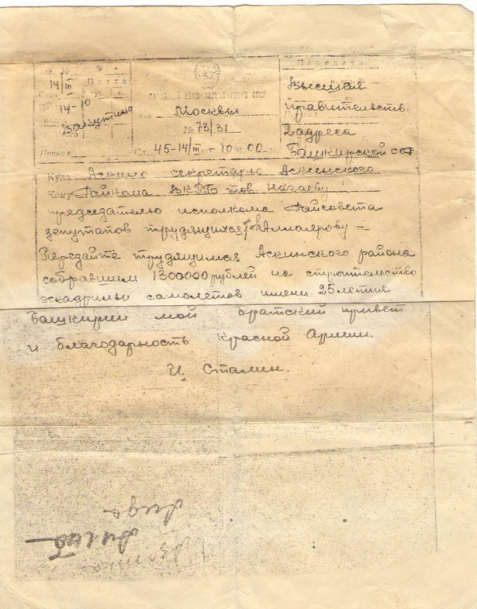 14/III
14-10
Москвы
№ 73/31
45-14/III - 10 ч 00
Высшая
правительств.
2 адреса
Башкирской
Куда Аскино секретарю Аскинского
Кому Райкома ВКПб тов.
председателю исполкома Райсовета
депутатов трудящихся тов
Передайте трудящимся Аскинского района
собравшим 1300000 рублей на строительство
эскадрильи самолетов имени 25летия
Башкирии мой братский привет
и благодарность Красной Армии.
И. Сталин.